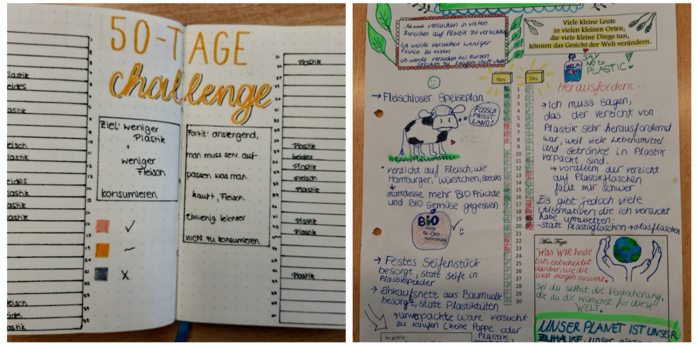 50-TAGE
challenge
Ziel: weniger
Plastik
+
weniger
Fleisch
konsumieren
Fazit: anstrengend,
man muss sehr auf
passen was man
kauft, Fleisch
nicht zu konsumieren
Plastik
Plastik
beides
Plastik
Fleisch
Plastik
Plastik
Plastik
Plastik
Ich werde versuchen in vielen
Bereichen auf Plastik zu verzichten
Ich werde versuchen weniger
Fleisch zu essen
Ich werde versuchen bei kurzen
Viele kleine Leute
in vielen kleinen Orten,
die viele kleine Dinge tun,
können das Gesicht der Welt verändern.
SAY
NO TO
PLASTIC!
Nov
Dez
→ Fleischloser Speiseplan
FLEISCH
FRISST
LAND!
• verzicht auf Fleisch, wie
Hamburger, Würstchen,
stattdesse mehr BIO Früchte
und BIO Gemüse gegessen
BIO
• Festes Seifenstück
besorgt, statt Seife in
Plastikspender
• Einkaufsnetz aus Baumwolle
besorgt, statt Plastiktüten
unverpackte Ware versucht
zu kaufen (keine Pappe oder
Plastik
Herausfordern...
→ Ich muss sagen,
das der verzicht von
Plastik sehr herausfordernd
war, weil viele Lebensmittel
und Getränke in Plastik
verpackt sind.
→ vorallem der verzicht
auf Plastikflaschen
fällt mir schwer
Es gibt jedoch viele
Alternativen die ich versucht
habe umzusetzen:
- statt Plastikflaschen → Glasflaschen
Was WIR heute
tun, entscheidet
darüber, wie die
Welt morgen aussieht.
Sei du selbst die Veränderung,
die du dir wünschst für diese
WELT.
UNSER PLANET IST UNSER
ZUHAUSE, UNSER